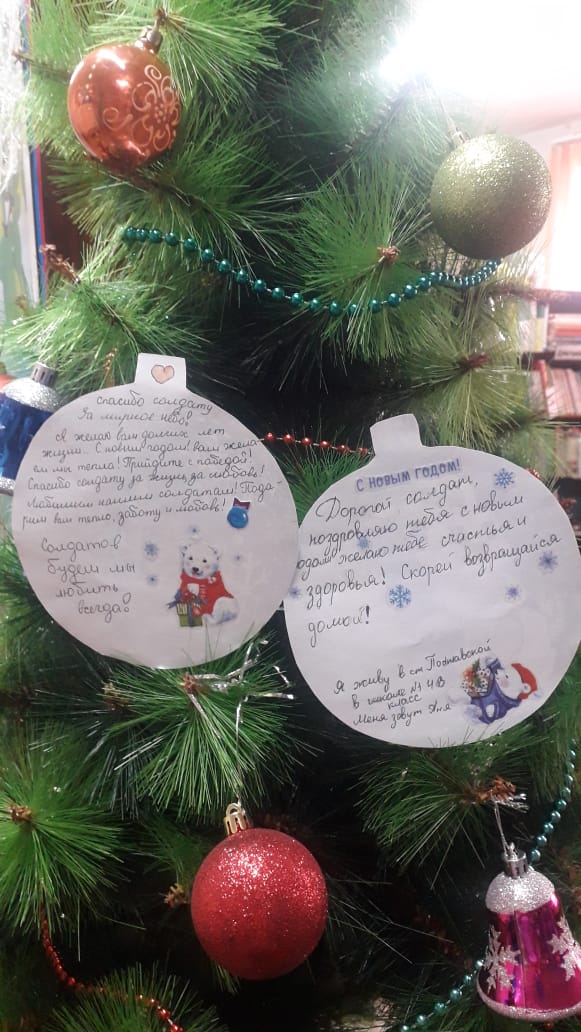 спасибо солдату
За мирное небо!
Я желаю вам долгих лет
жизни. С новым годом! вам жела-
ем мы тепла! Придите с победой!
Спасибо солдату за жизнь, за любовь!
Любимым нашим солдатам! Пода-
рим вам тепло, заботу и любовь!
Солдатов
будем мы
любить
всегда!
С НОВЫМ ГОДОМ!
Дорогой солдат,
поздровляю тебя с новым
годом! желаю тебе счастья и
здоровья! Скорей возвращайся
домой!
Я живу в ст. Полтавской
в школе №1 4 В
класс
Меня зовут Аня